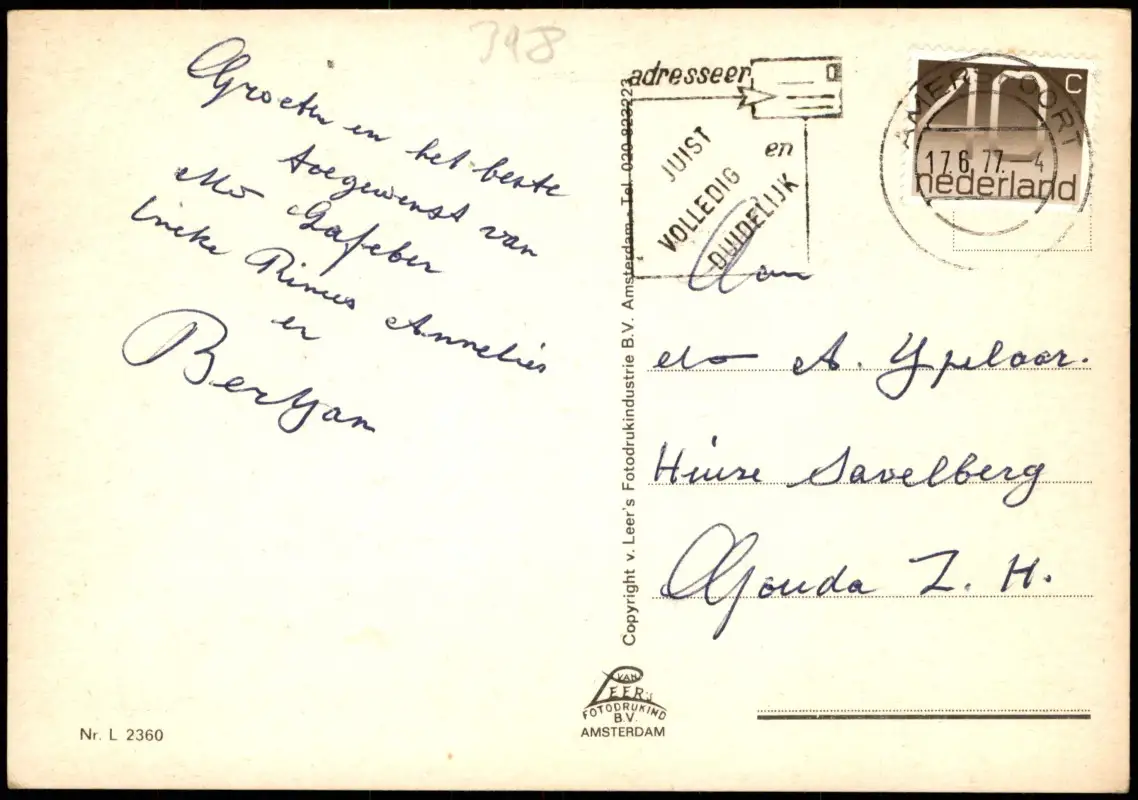 348
Groeten en het beste
toegewenst van
Mo Gafeber
Lineke Rinus Annelies
en
BertJan
Nr. L 2360
Copyright v. Leer's Fotodrukindustrie B.V. Amsterdam - Tel. 020-823223
VAN
LEER's
FOTODRUKIND
B.V.
AMSTERDAM
adresseer
JUIST
VOLLEDIG
en
DUIDELIJK
AMERSFOORT
17.6.77.- 4
40 c
nederland
Aan
A. Ypelaar.
Huize Savelberg
Gouda Z. H.